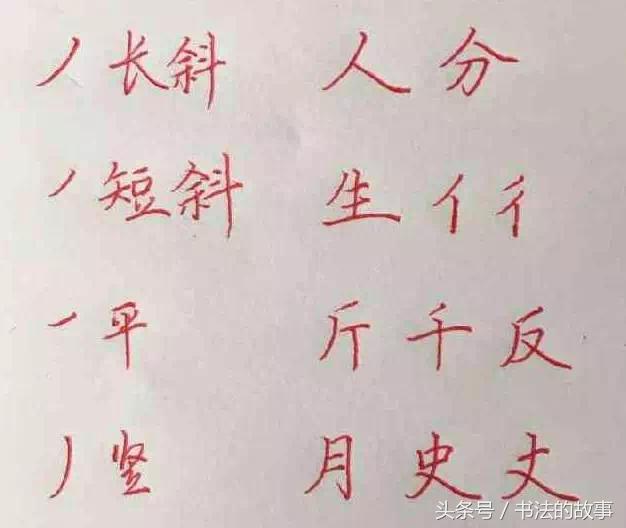 丿长斜 人 分
丿短斜 生 亻 彳
㇒平 斤 千 反
丿竖 月 史 丈
头条号 / 书法的故事